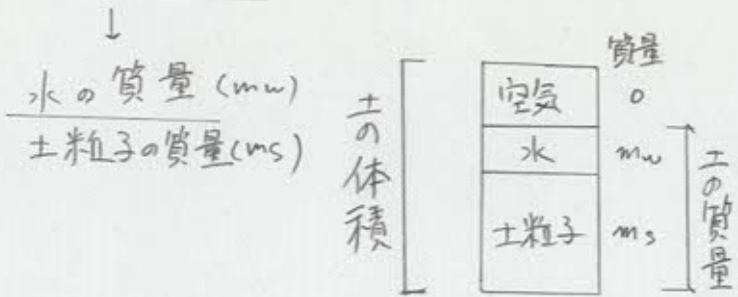 ↓
水の質量(mw)
土粒子の質量(ms)
土の体積
質量
空気 0
水 mw
土粒子 ms
土の質量